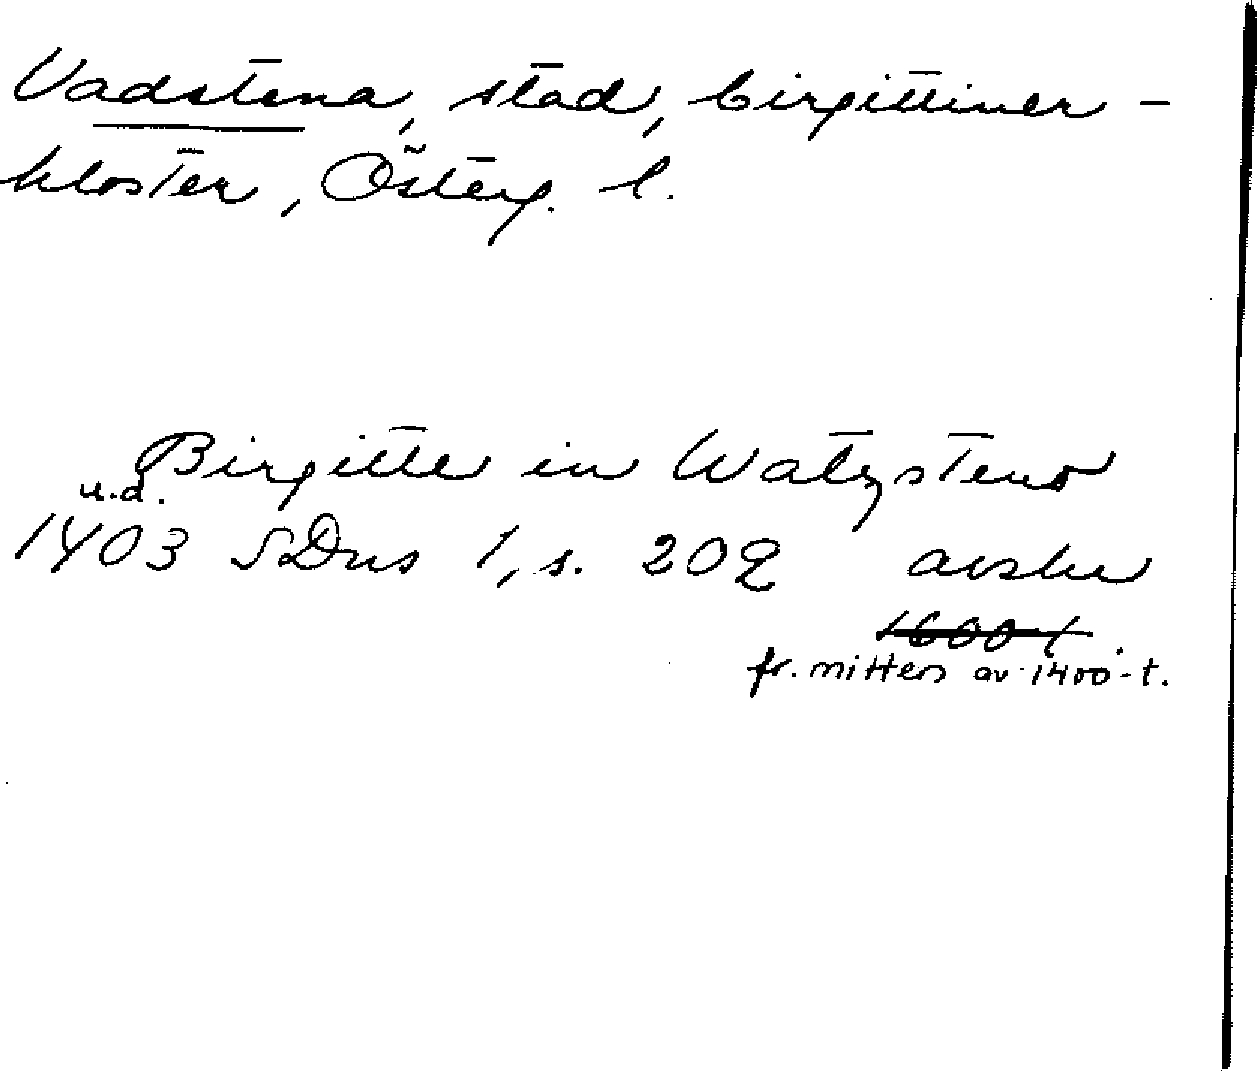 Vadstena, stad, birgittiner-
kloster, Österg. l.
Birgitte in Watzsteno
u.d.
1403 SDns 1, s. 202 avskr
1600 t.
fr. mitten av 1400-t.